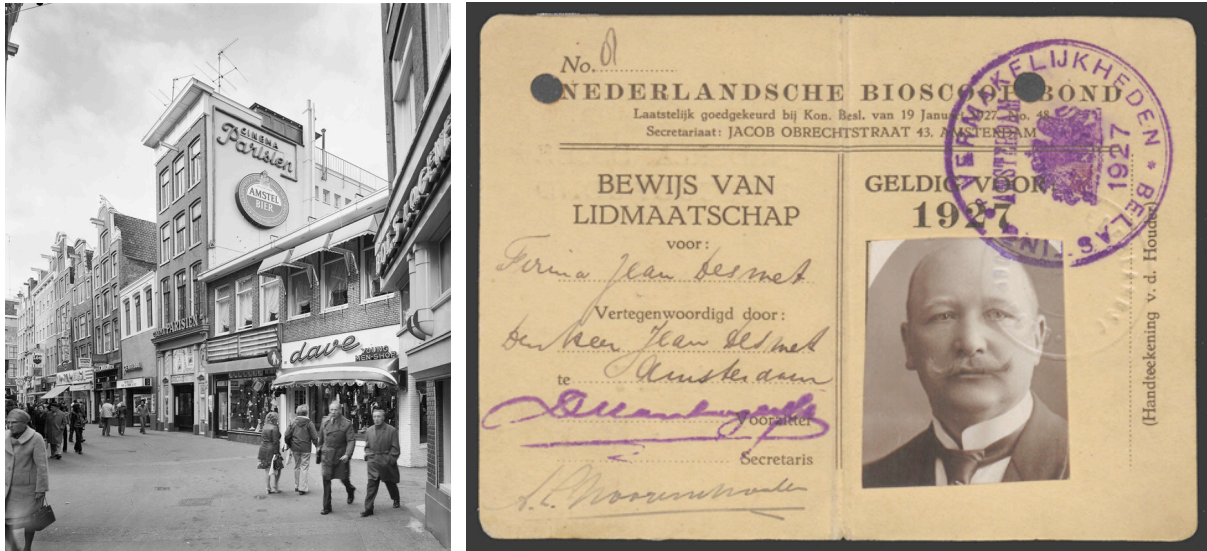 CINEMA
Parisien
AMSTEL
BIER
PARISIEN
dave
YOUNG
MEN-SHOP
No.
NEDERLANDSCHE BIOSCOOP BOND
Laatstelijk goedgekeurd bij Kon. Besl. van 19 Januari 1927, No. 48
Secretariaat: JACOB OBRECHTSTRAAT 43. AMSTERDAM
BEWIJS VAN
LIDMAATSCHAP
voor:
Firma Jean Desmet
Vertegenwoordigd door:
Den Heer Jean Desmet
te Amsterdam
Voorzitter
Secretaris
GELDIG VOOR
1927
VERMAKELIJKHEDEN * BELAS
AMSTERDAM
1927
(Handteekening v. d. Houder)